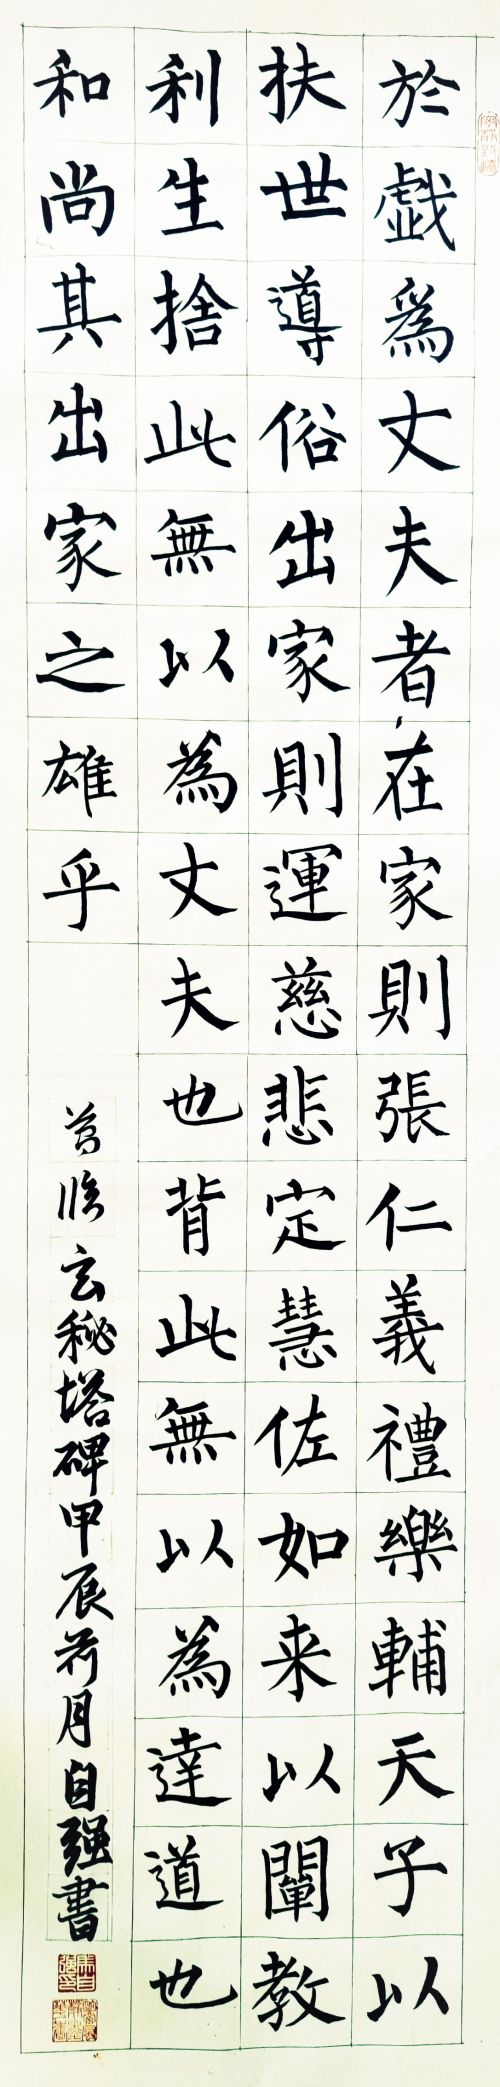 於戯爲丈夫者在家則張仁義禮樂輔天子以
扶世導俗出家則運慈悲定慧佐如来以闡教
利生捨此無以為丈夫也背此無以為達道也
和尚其出家之雄乎
临玄秘塔碑甲辰荷月自强書